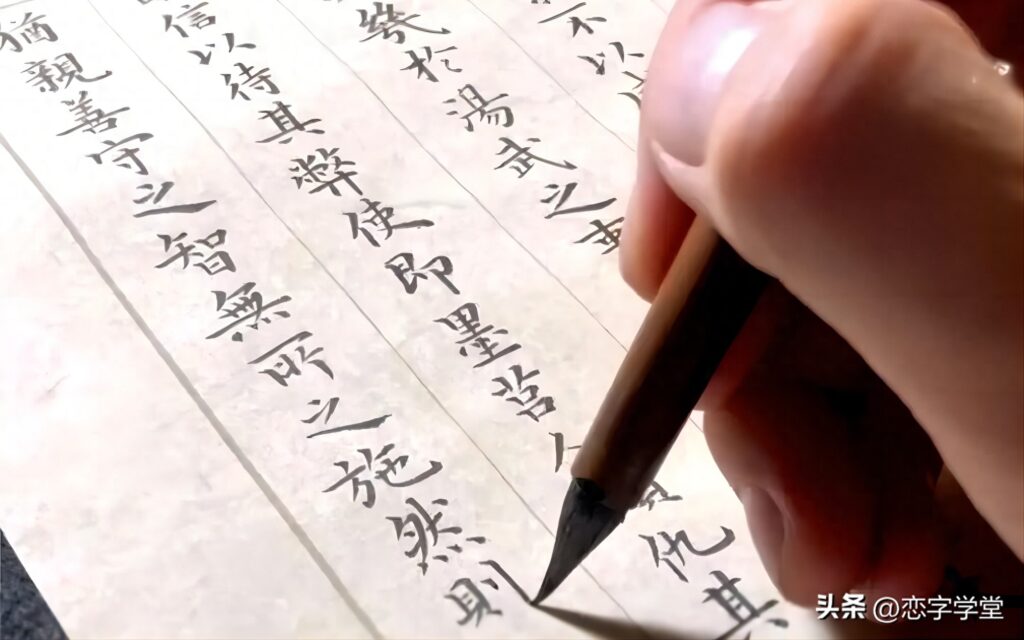 不以
幾於湯武之事
信以待其弊使即墨莒仇其
猶親善守之智無所之施然則
头条 @恋字学堂